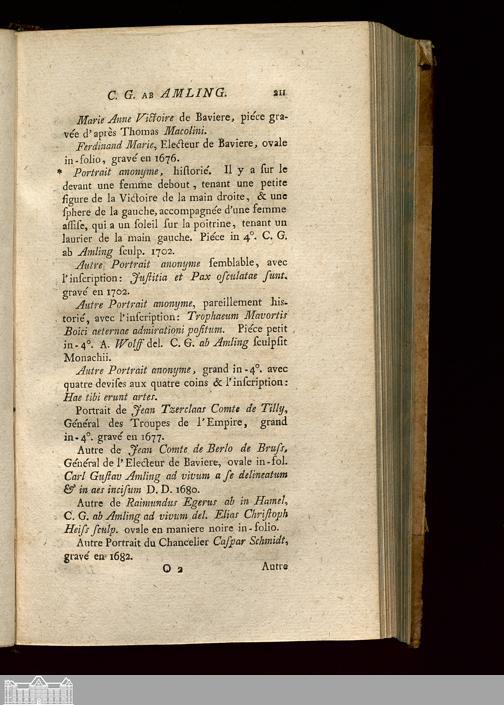 C. G. AB AMLING. 211
Marie Anne Victoire de Baviere, piéce gra-
vée d'après Thomas Macolini.
Ferdinand Marie, Electeur de Baviere, ovale
in-folio, gravé en 1676.
* Portrait anonyme, historié. Il y a sur le
devant une femme debout, tenant une petite
figure de la Victoire de la main droite, & une
sphere de la gauche, accompagnée d'une femme
assise, qui a un soleil sur la poitrine, tenant un
laurier de la main gauche. Piéce in 4°. C. G.
ab Amling sculp. 1702.
Autre Portrait anonyme semblable, avec
l'inscription: Justitia et Pax osculatae sunt.
gravé en 1702.
Autre Portrait anonyme, pareillement his-
torié, avec l'inscription: Trophaeum Mavortis
Boici aeternae admirationi positum. Piéce petit
in-4°. A. Wolff del. C. G. ab Amling sculpsit
Monachii.
Autre Portrait anonyme, grand in-4°. avec
quatre devises aux quatre coins & l'inscription:
Hae tibi erunt artes.
Portrait de Jean Tzerclaas Comte de Tilly,
Général des Troupes de l'Empire, grand
in-4°. gravé en 1677.
Autre de Jean Comte de Berlo de Bruss,
Général de l'Electeur de Baviere, ovale in-fol.
Carl Gustav Amling ad vivum a se delineatum
& in aes incisum D. D. 1680.
Autre de Raimundus Egerus ab in Hamel,
C. G. ab Amling ad vivum del. Elias Christoph
Heiss sculp. ovale en maniere noire in-folio.
Autre Portrait du Chancelier Caspar Schmidt,
gravé en 1682.
O 2 Autre